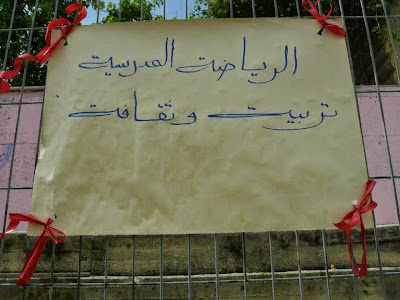 الرياضة المدرسية
تربية وثقافة